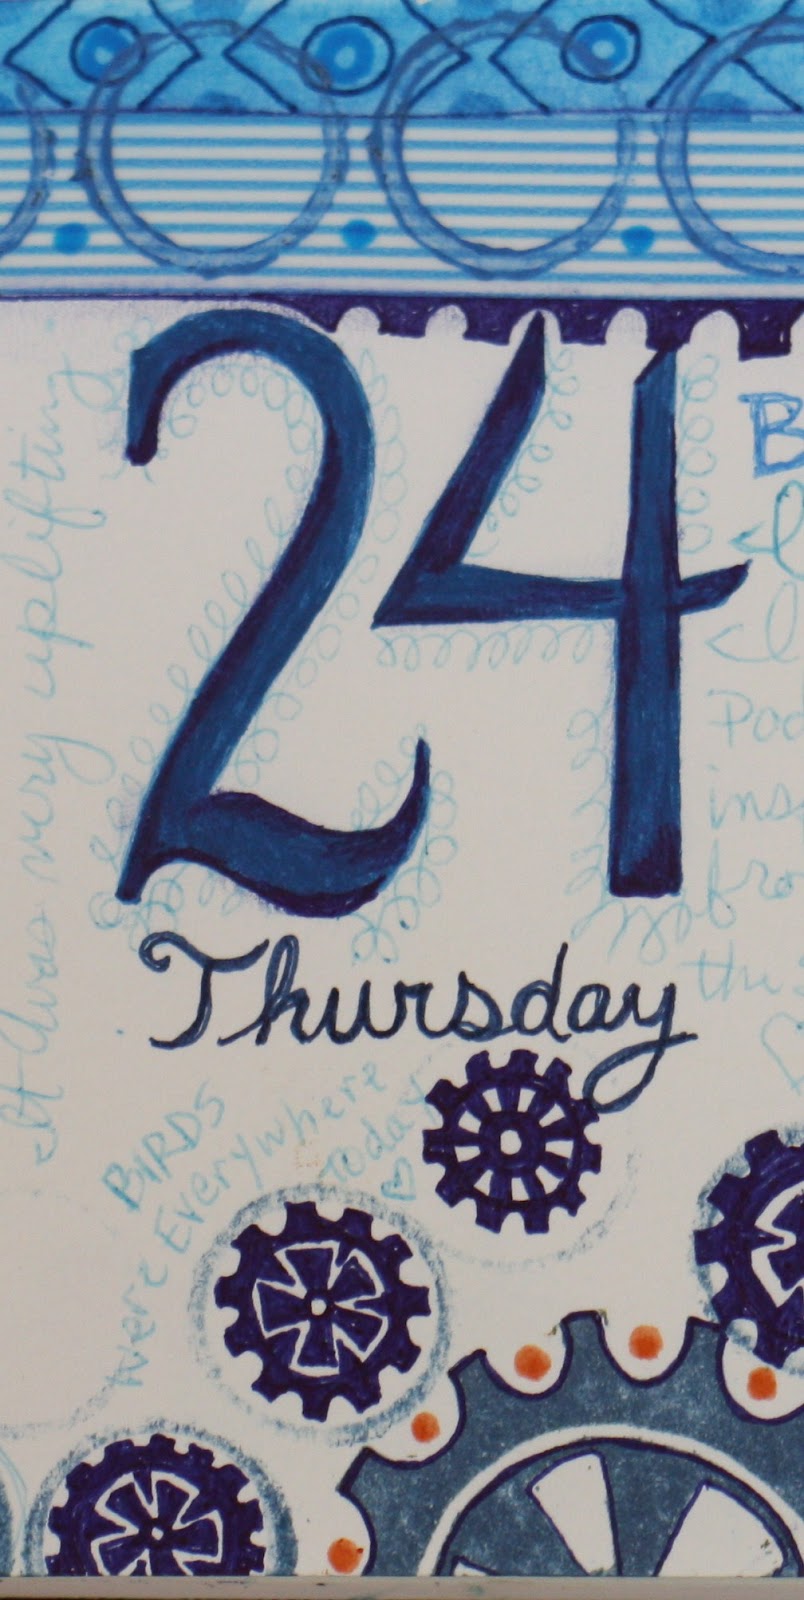 24
Thursday
It was very uplifting
BIRDS
were Everywhere
today
B
Pod
ins
fro
the